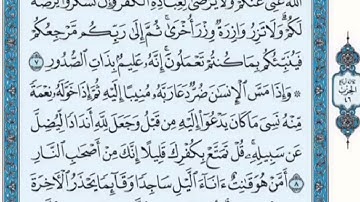 ٱللَّهَ غَنِىٌّ عَنكُمْ وَلَا يَرْضَىٰ لِعِبَادِهِ ٱلْكُفْرَ وَإِن تَشْكُرُوا۟ يَرْضَهُ
لَكُمْ وَلَا تَزِرُ وَازِرَةٌ وِزْرَ أُخْرَىٰ ثُمَّ إِلَىٰ رَبِّكُم مَّرْجِعُكُمْ
فَيُنَبِّئُكُم بِمَا كُنتُمْ تَعْمَلُونَ إِنَّهُۥ عَلِيمٌۢ بِذَاتِ ٱلصُّدُورِ ٧
۞ وَإِذَا مَسَّ ٱلْإِنسَٰنَ ضُرٌّ دَعَا رَبَّهُۥ مُنِيبًا إِلَيْهِ ثُمَّ إِذَا خَوَّلَهُۥ نِعْمَةً
مِّنْهُ نَسِىَ مَا كَانَ يَدْعُوٓا۟ إِلَيْهِ مِن قَبْلُ وَجَعَلَ لِلَّهِ أَندَادًا لِّيُضِلَّ
عَن سَبِيلِهِۦ قُلْ تَمَتَّعْ بِكُفْرِكَ قَلِيلًا إِنَّكَ مِنْ أَصْحَٰبِ ٱلنَّارِ
٨ أَمَّنْ هُوَ قَٰنِتٌ ءَانَآءَ ٱلَّيْلِ سَاجِدًا وَقَآئِمًا يَحْذَرُ ٱلْءَاخِرَةَ
الحزب
٤٦